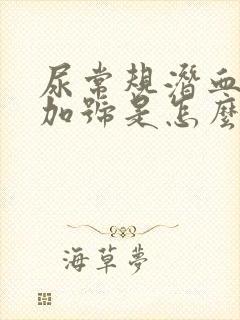 尿常規潛血
加號是怎麼
海草夢